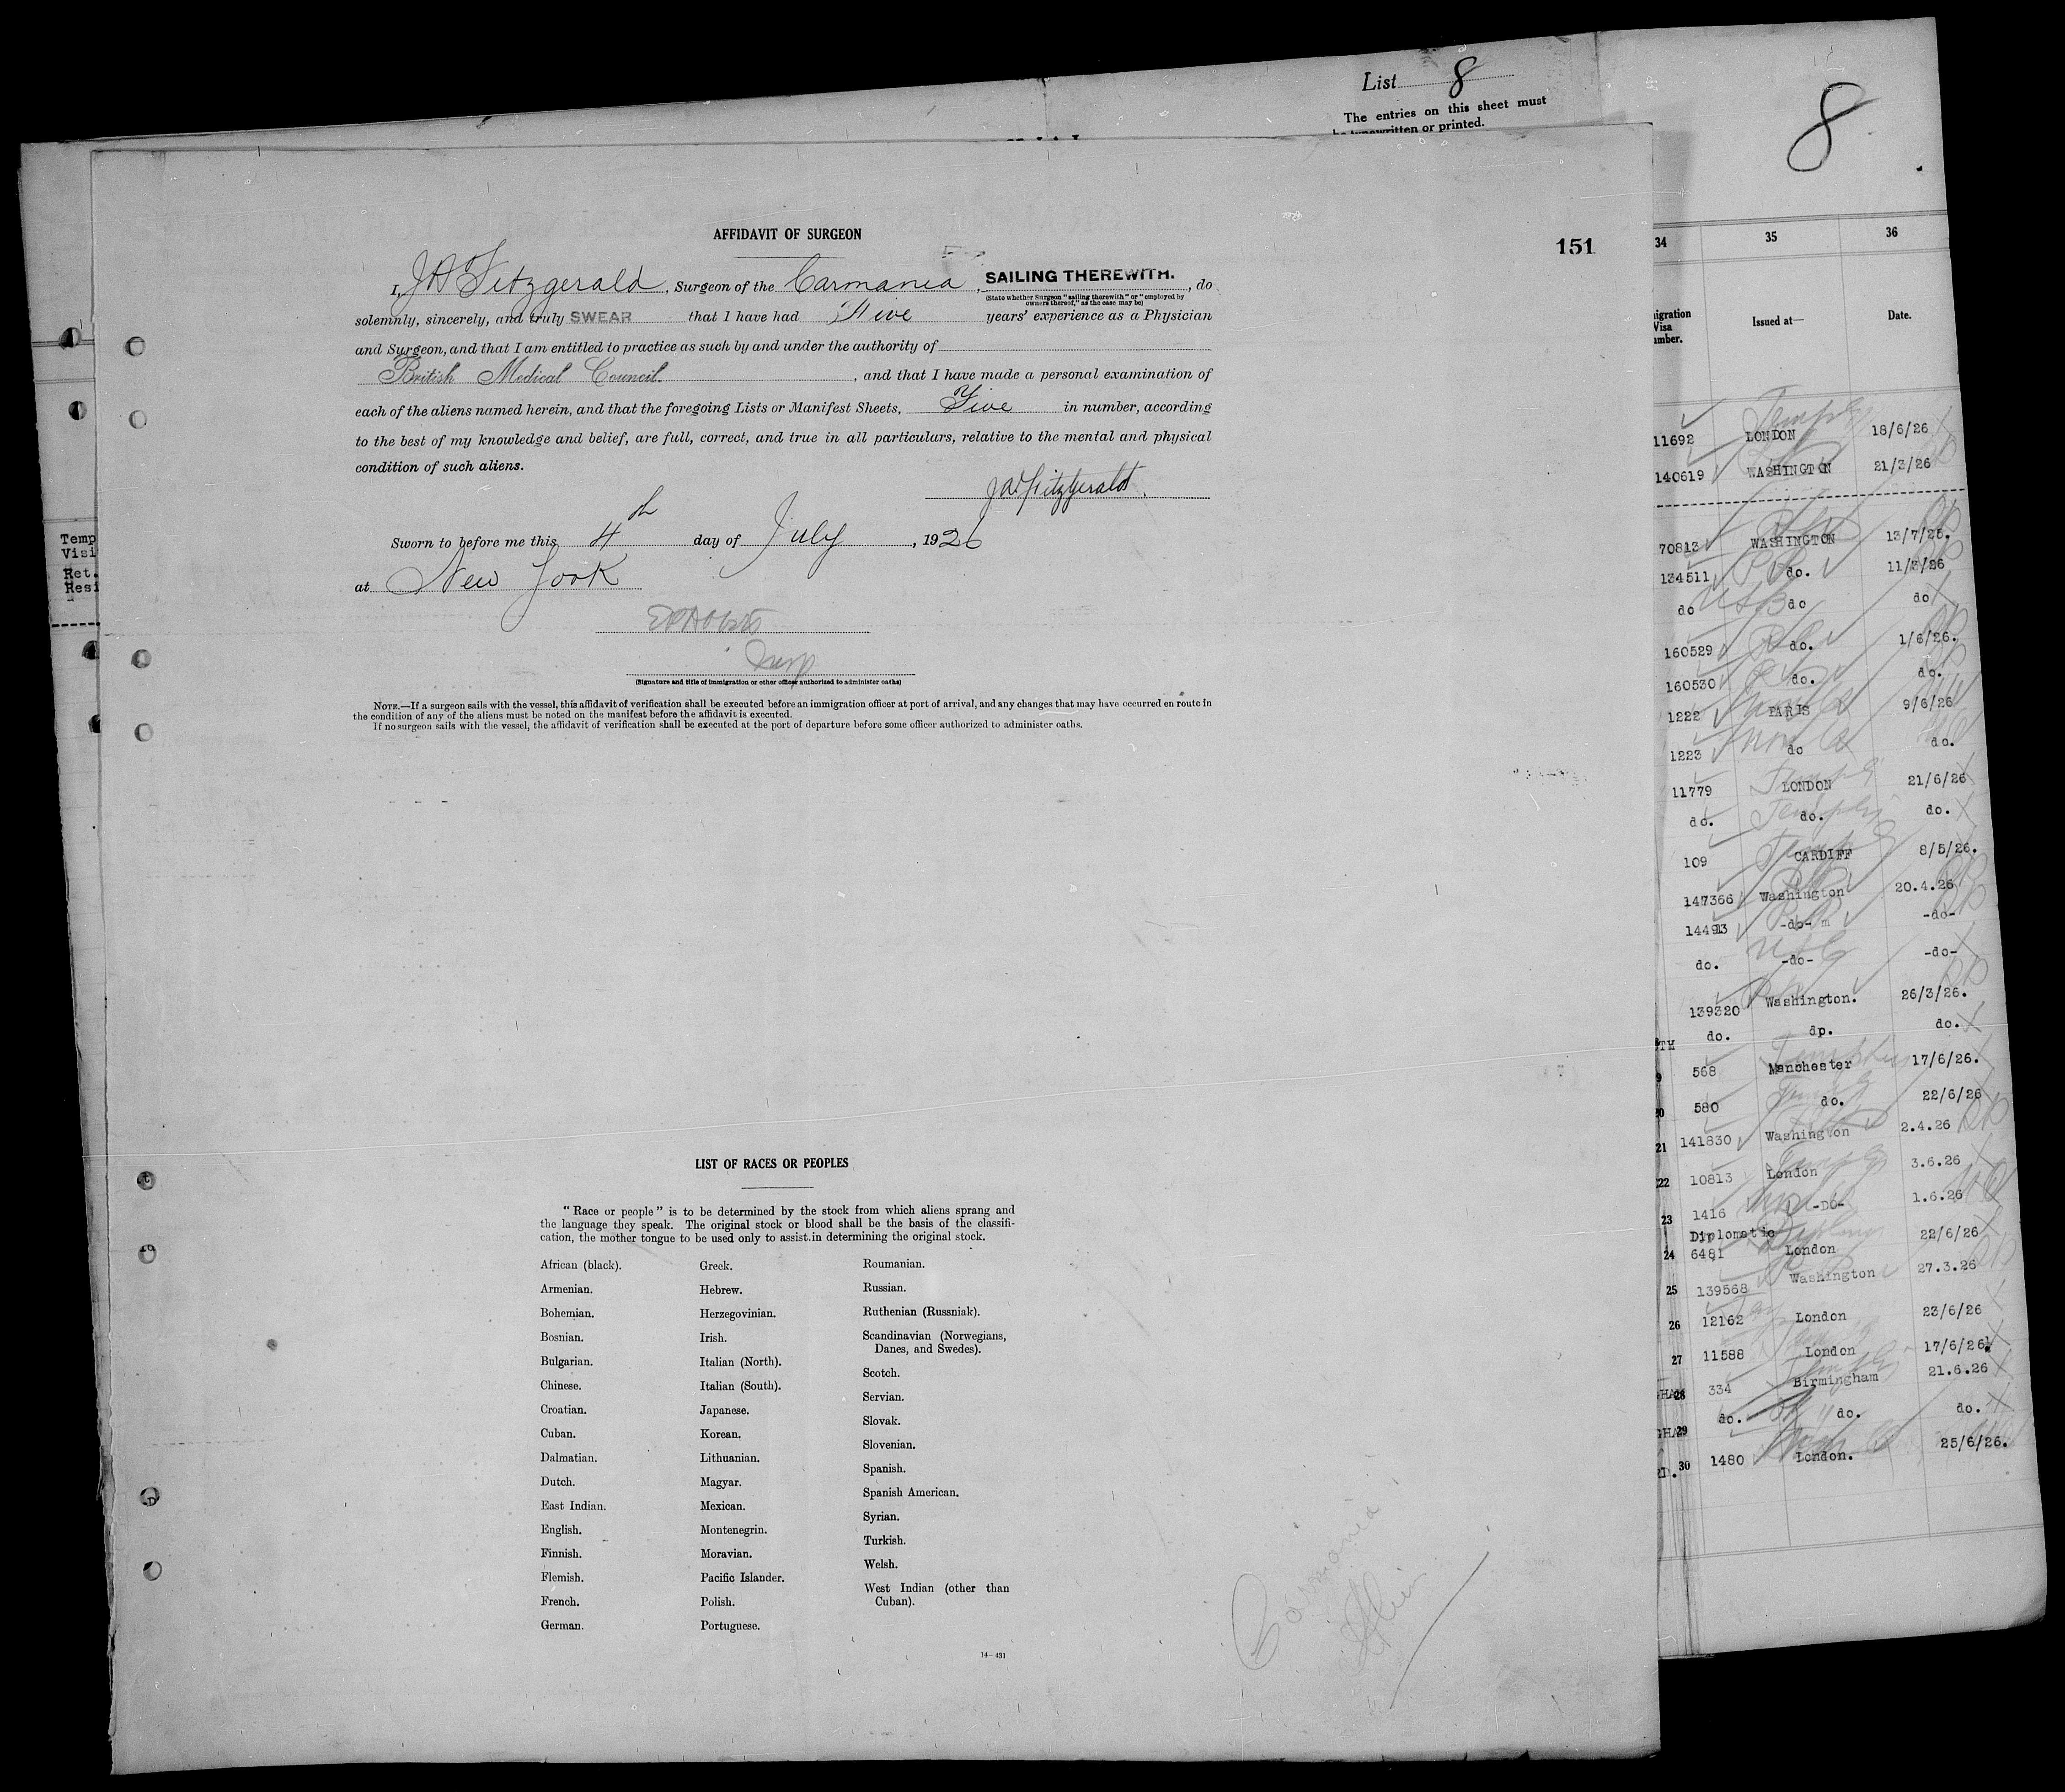 List 8
The entries on this sheet must
be typewritten or printed.
8
151
AFFIDAVIT OF SURGEON
I, J A Fitzgerald, Surgeon of the Carmania, SAILING THEREWITH., do
(State whether Surgeon "sailing therewith" or "employed by
owners thereof," as the case may be)
solemnly, sincerely, and truly SWEAR that I have had Five years' experience as a Physician
and Surgeon, and that I am entitled to practice as such by and under the authority of
British Medical Council., and that I have made a personal examination of
each of the aliens named herein, and that the foregoing Lists or Manifest Sheets, Five in number, according
to the best of my knowledge and belief, are full, correct, and true in all particulars, relative to the mental and physical
condition of such aliens.
J A Fitzgerald.
Sworn to before me this 4th day of July, 1926
at New York
Insp
(Signature and title of immigration or other officer authorized to administer oaths)
NOTE.—If a surgeon sails with the vessel, this affidavit of verification shall be executed before an immigration officer at port of arrival, and any changes that may have occurred en route in
the condition of any of the aliens must be noted on the manifest before the affidavit is executed.
If no surgeon sails with the vessel, the affidavit of verification shall be executed at the port of departure before some officer authorized to administer oaths.
LIST OF RACES OR PEOPLES
"Race or people" is to be determined by the stock from which aliens sprang and
the language they speak. The original stock or blood shall be the basis of the classifi-
cation, the mother tongue to be used only to assist in determining the original stock.
African (black).
Armenian.
Bohemian.
Bosnian.
Bulgarian.
Chinese.
Croatian.
Cuban.
Dalmatian.
Dutch.
East Indian.
English.
Finnish.
Flemish.
French.
German.
Greek.
Hebrew.
Herzegovinian.
Irish.
Italian (North).
Italian (South).
Japanese.
Korean.
Lithuanian.
Magyar.
Mexican.
Montenegrin.
Moravian.
Pacific Islander.
Polish.
Portuguese.
Roumanian.
Russian.
Ruthenian (Russniak).
Scandinavian (Norwegians,
Danes, and Swedes).
Scotch.
Servian.
Slovak.
Slovenian.
Spanish.
Spanish American.
Syrian.
Turkish.
Welsh.
West Indian (other than
Cuban).
14—431
Carmania
Temp
Visi
Ret.
Resi
34 35 36
igration
Visa
umber.
Issued at—
Date.
11692 LONDON 18/6/26
140619 WASHINGTON 21/3/26
70813 WASHINGTON 13/7/25.
134511 do. 11/2/26
do do do
160529 do. 1/6/26.
160530 do. do.
1222 PARIS 9/6/26
1223 do do.
11779 LONDON 21/6/26
do. do. do.
109 CARDIFF 8/5/26.
147366 Washington 20.4.26
-do- -do-
do. -do- -do-
139320 Washington. 26/3/26.
do. dp. do.
568 Manchester 17/6/26.
20 580 do. 22/6/26
21 141830 Washington 2.4.26
22 10813 London 3.6.26
23 1416 -DO- 1.6.26
Diplomatic
24 6481 London 22/6/26
25 139568 Washington 27.3.26
26 12162 London 23/6/26
27 11588 London 17/6/26
28 334 Birmingham 21.6.26
29 do. do. do.
30 1480 London. 25/6/26.